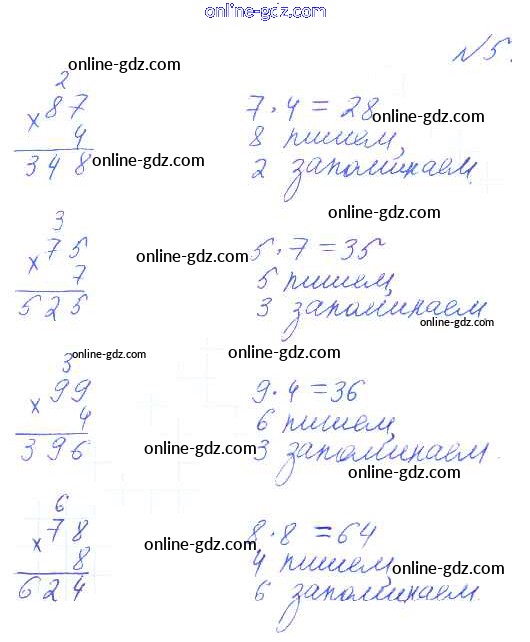 online-gdz.com
N5.
online-gdz.com
2
× 87 7 · 4 = 28 online-gdz.com
4 8 пишем,
348 online-gdz.com 2 запоминаем.
online-gdz.com
3
× 75 online-gdz.com 5 · 7 = 35
7 5 пишем, online-gdz.com
525 3 запоминаем
online-gdz.com
online-gdz.com online-gdz.com
3
× 99 9 · 4 = 36
4 6 пишем,
396 online-gdz.com 3 запоминаем.
online-gdz.com
6
× 78 online-gdz.com 8 · 8 = 64
8 4 пишем, online-gdz.com
624 6 запоминаем.
online-gdz.com